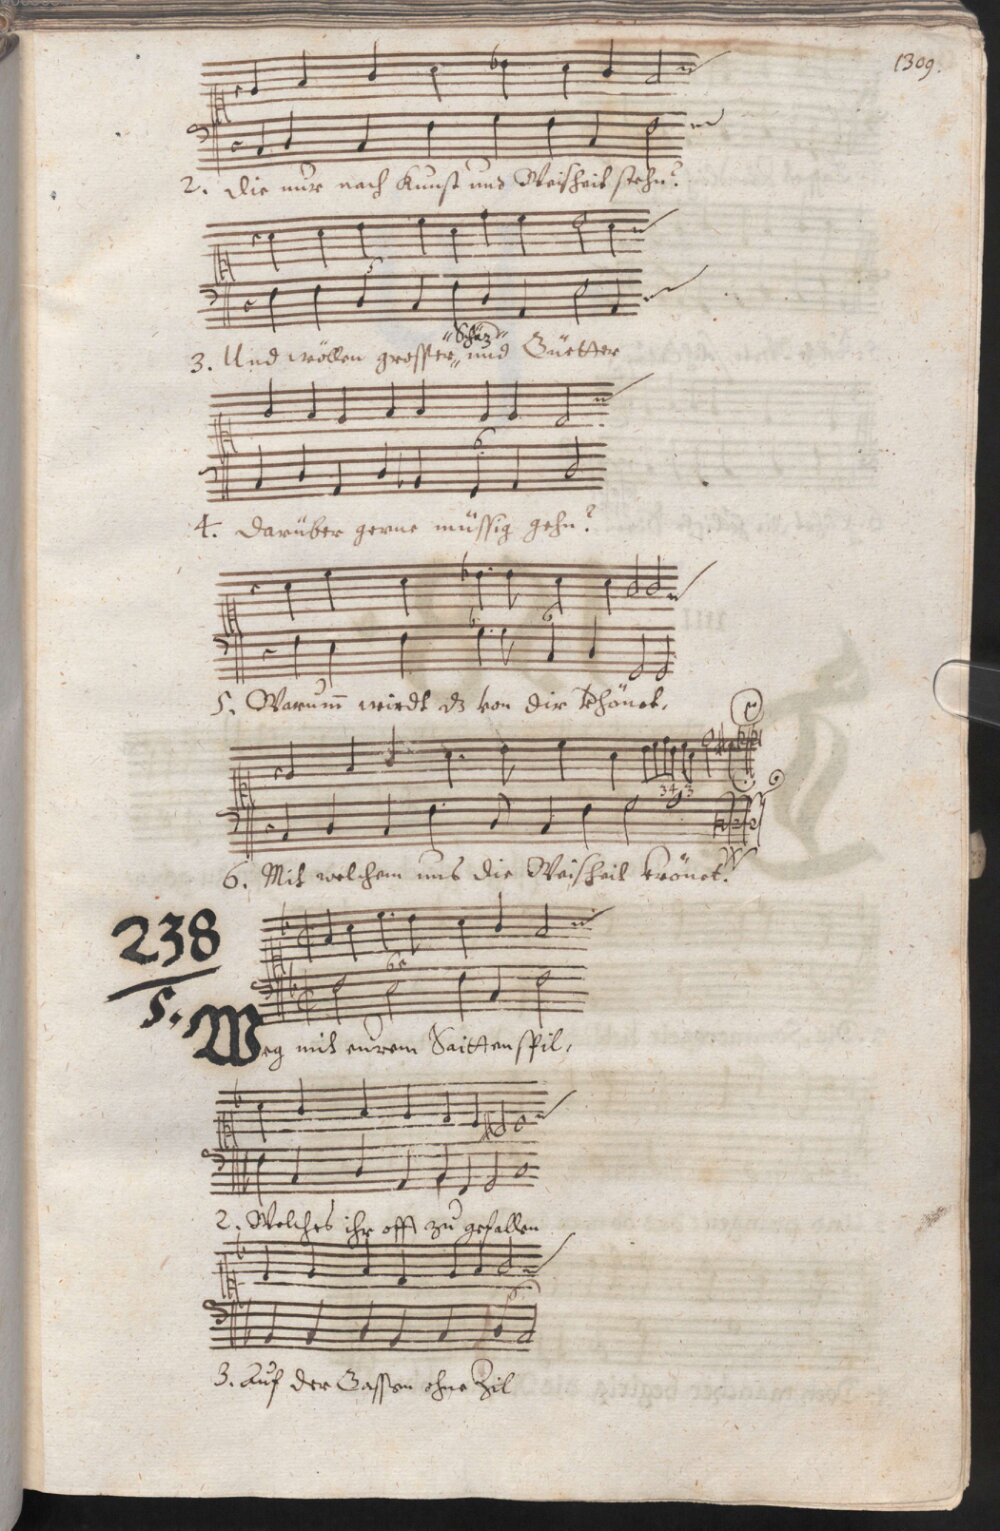 1309.
2. Die nur nach Kunst und Weisheit stehn?
3. Und wöllen grosser „Schäz“ und Güetter
4. Darüber gerne müssig gehn?
5. Warum̄ wirdt dz von dir khönet,
6. Mit welchem uns die Weisheit krönet.
238
5. Weg mit eurem Saittenspil,
2. Welches ihr offt zu gefallen
3. Auf der Gassen ohne Zil